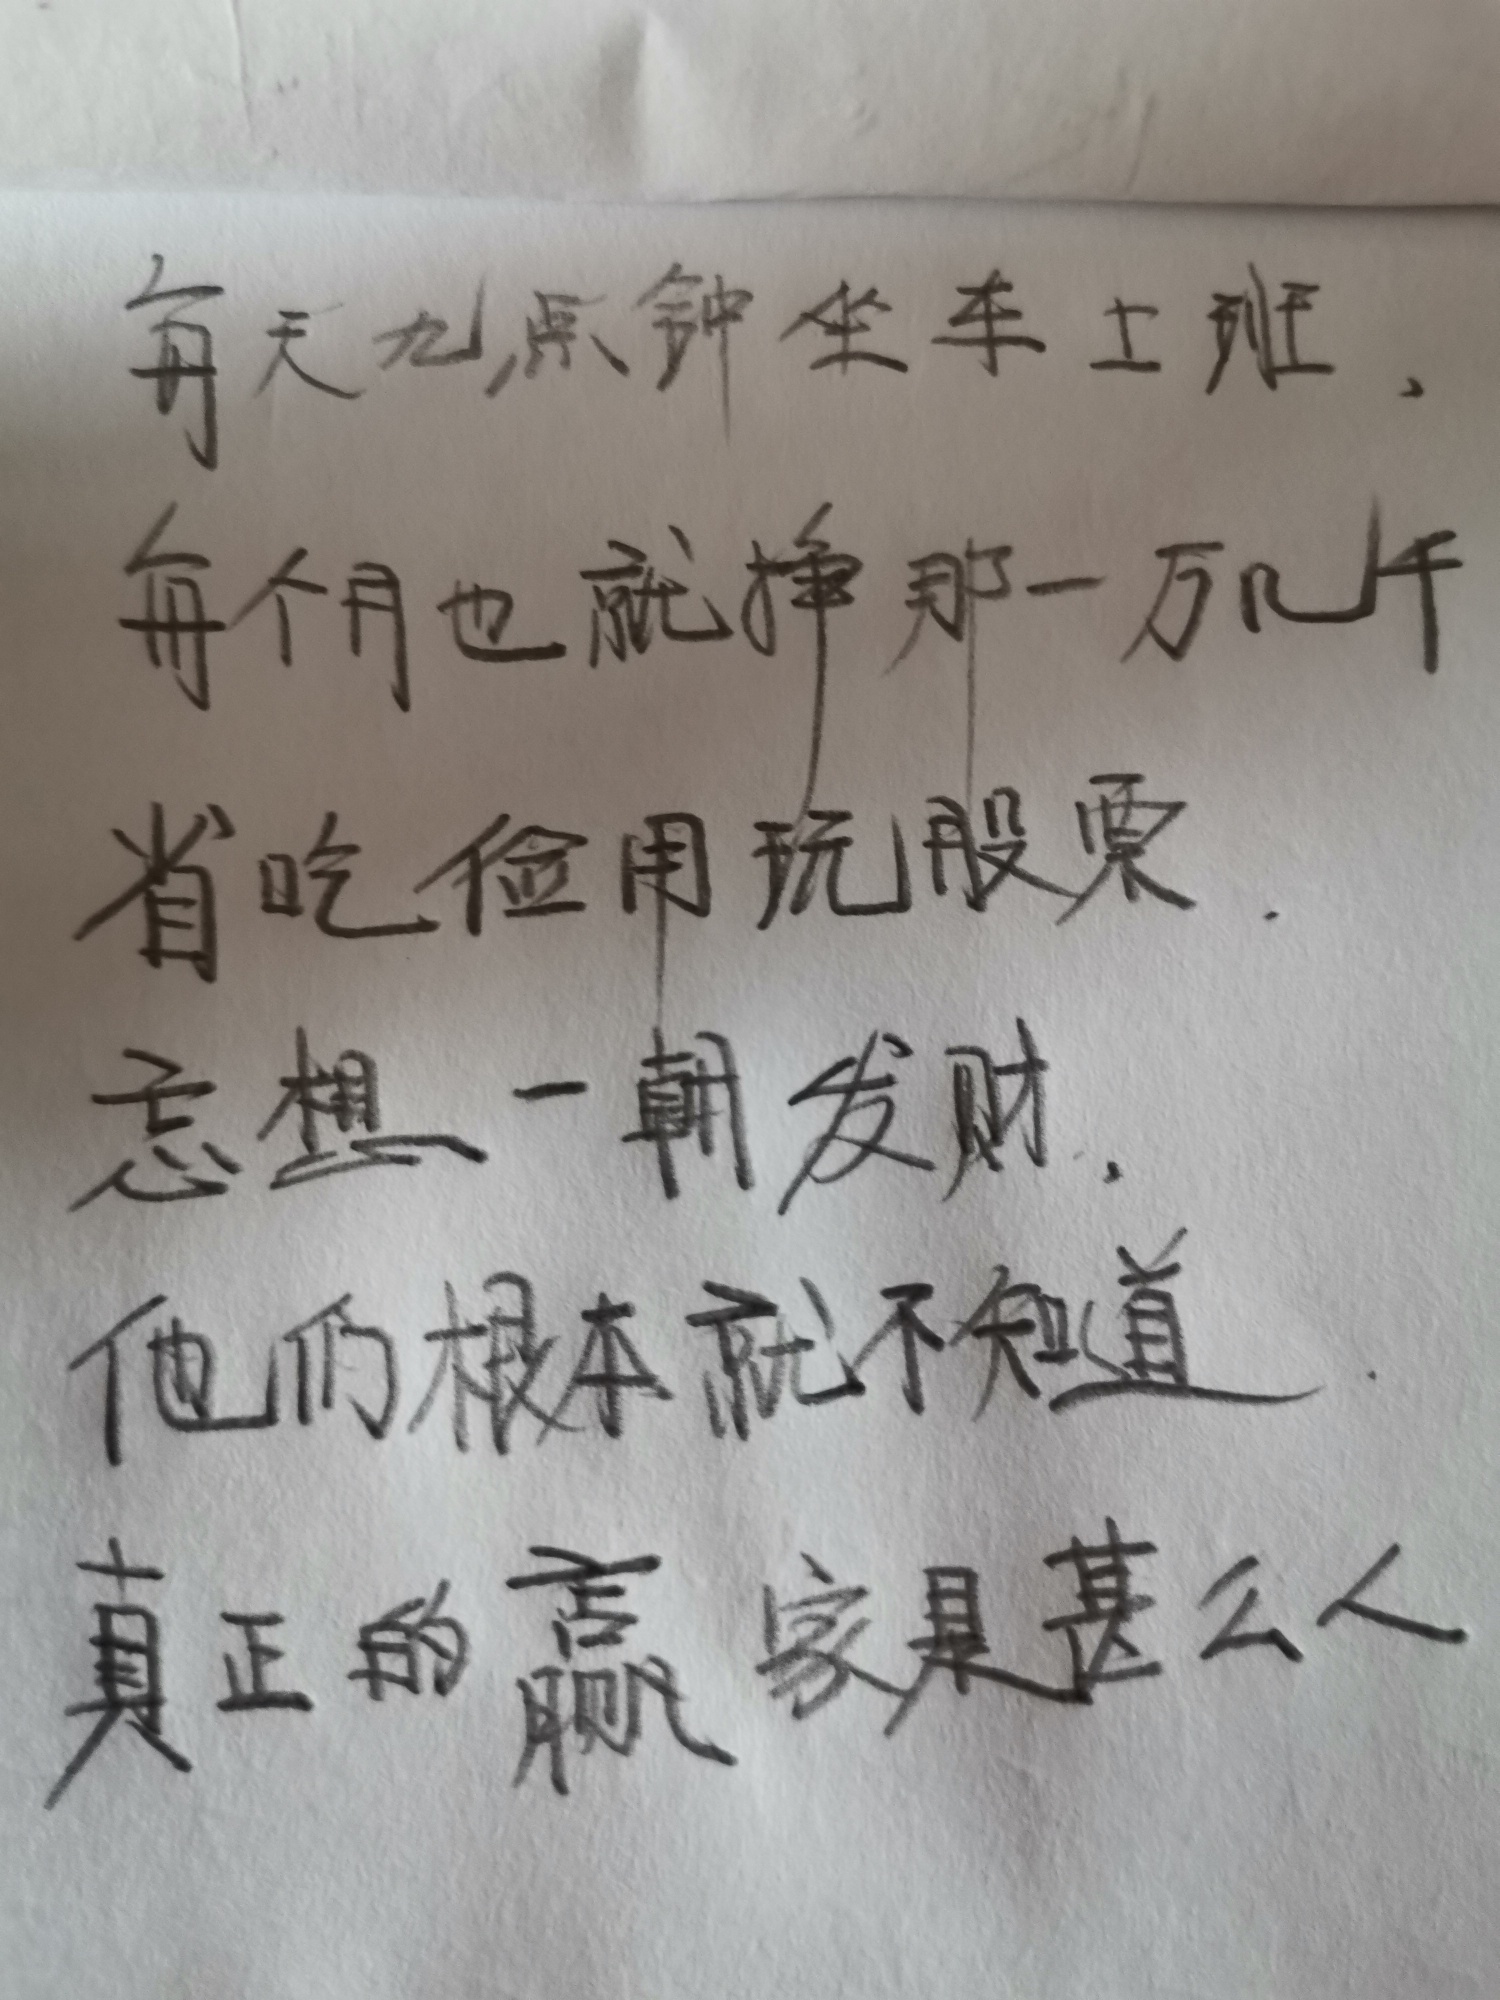 每天九点钟坐车上班.
每个月也就挣那一万几千
省吃俭用玩股票.
忘想一朝发财.
他们根本就不知道.
真正的赢家是甚么人